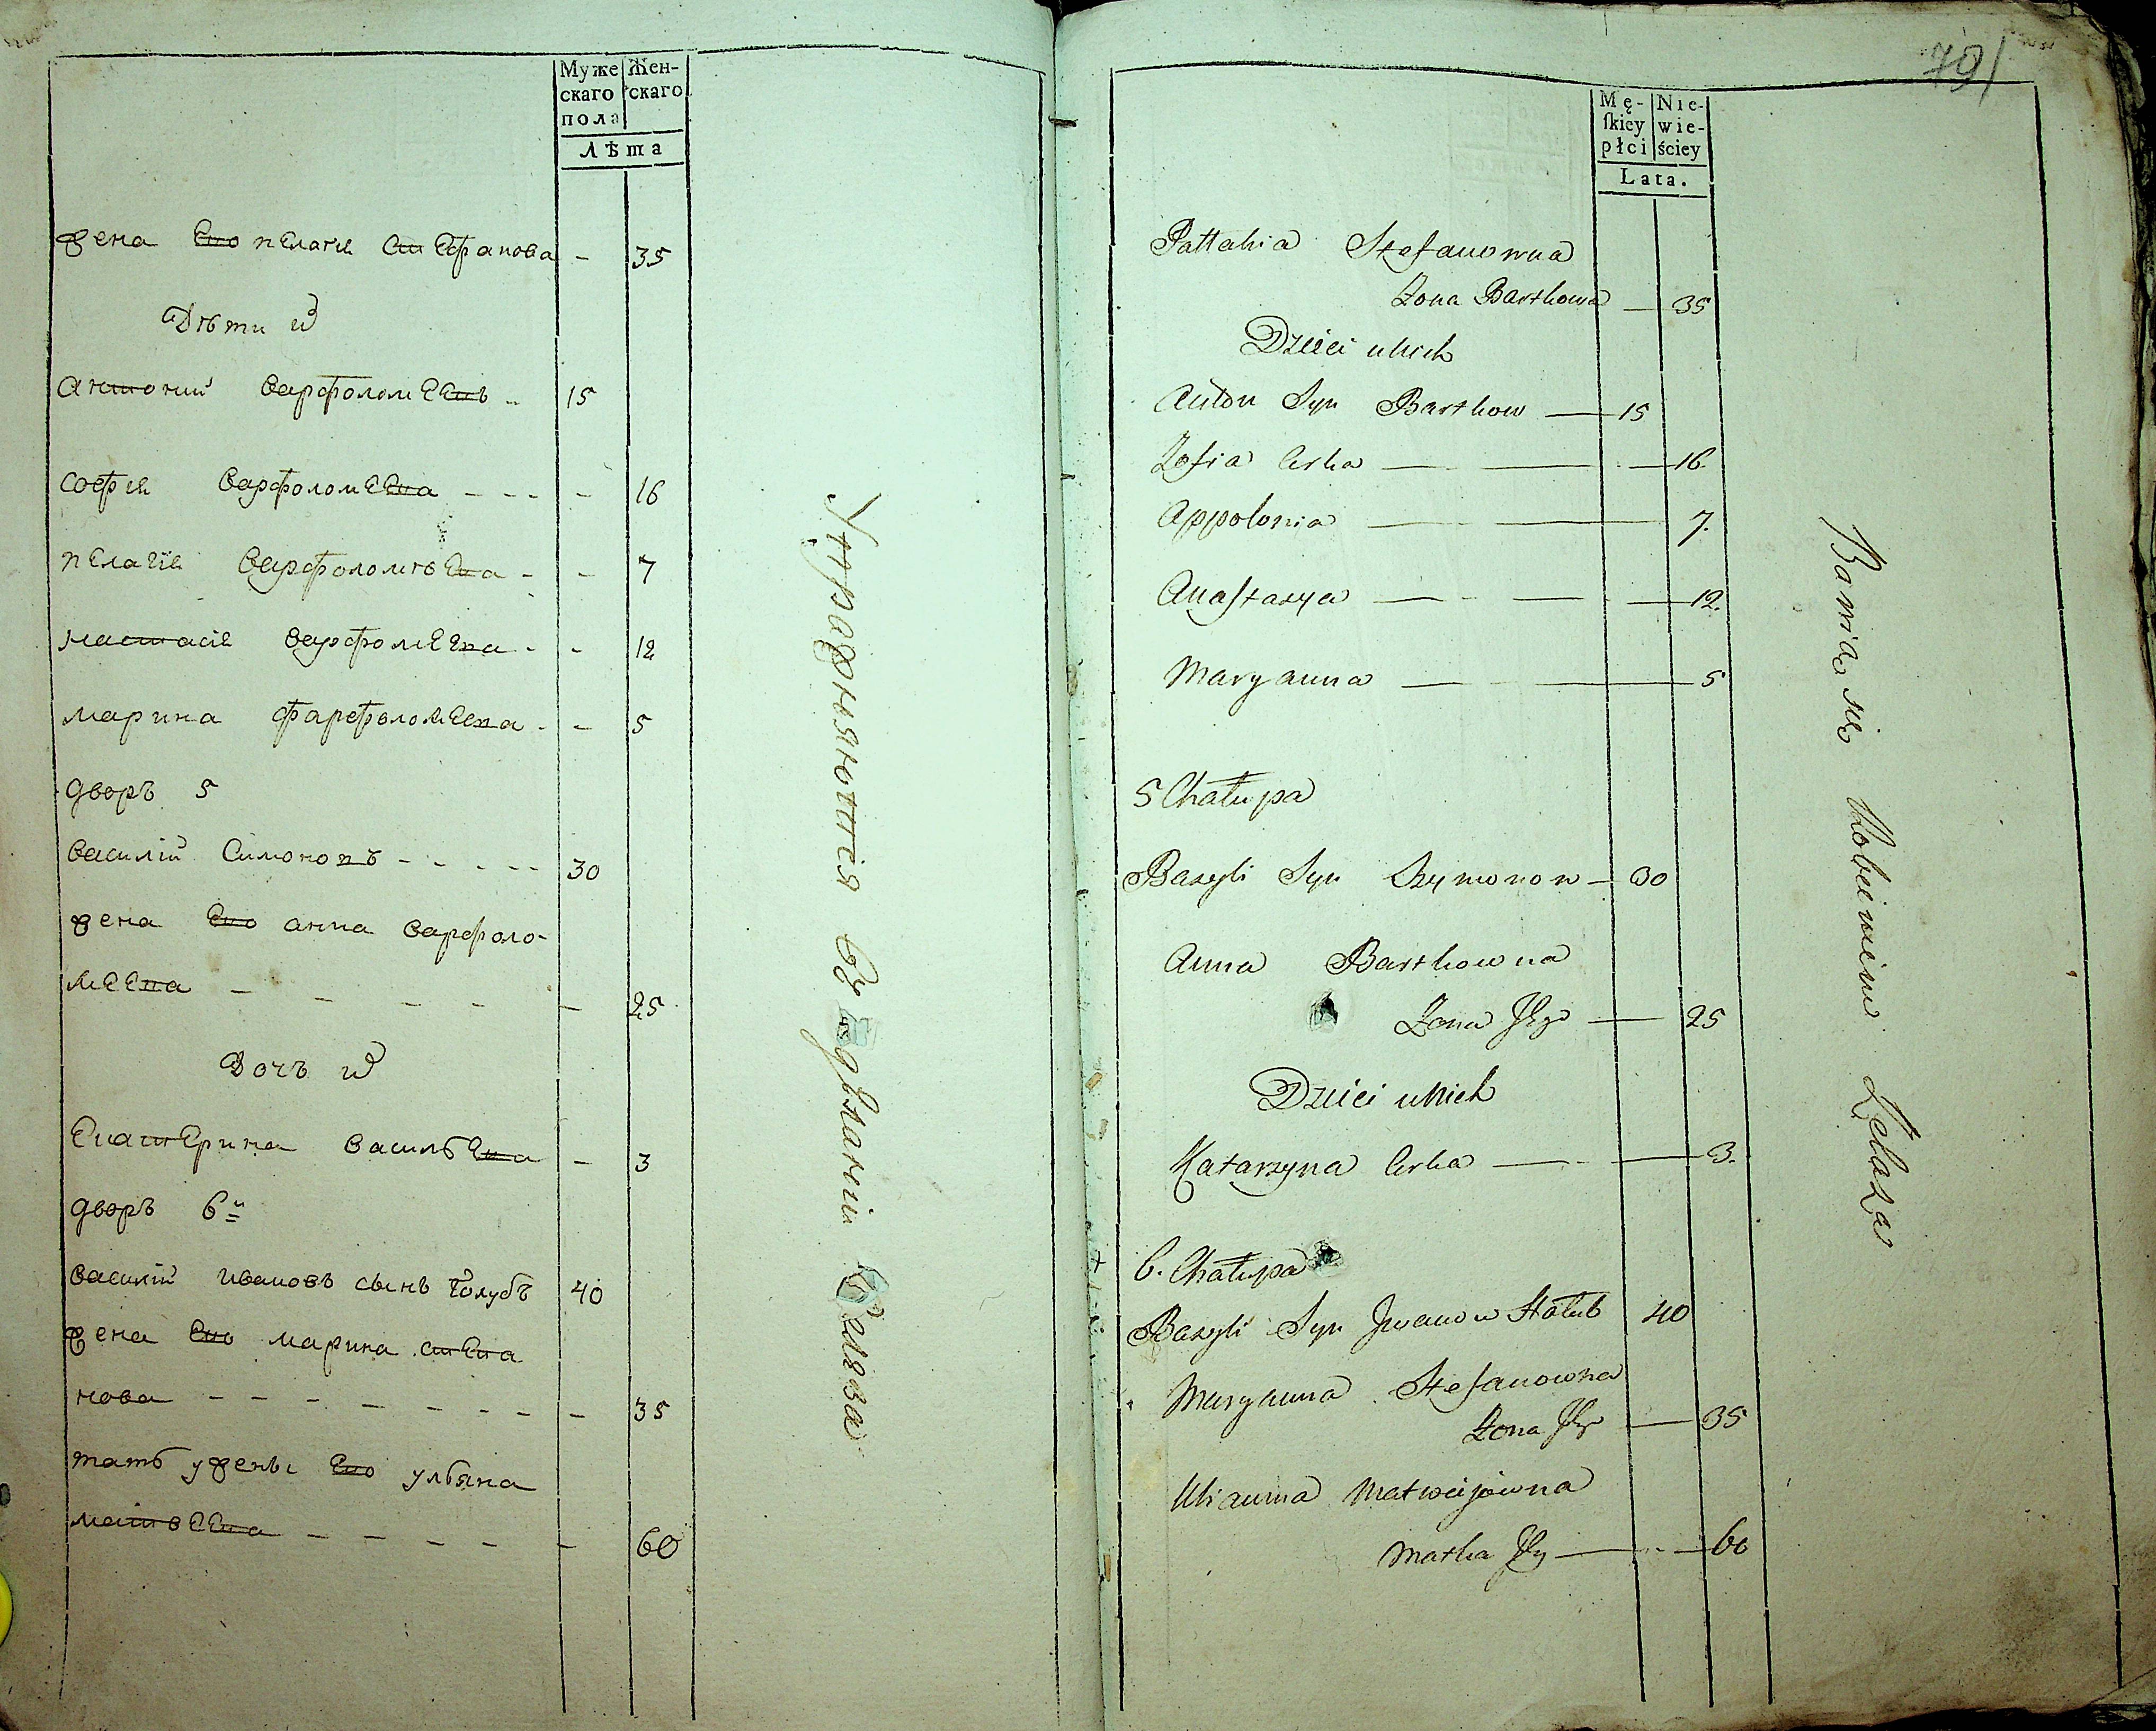 Муже Жен-
скаго скаго
пола
Лѣта
жена Его пелагия Стефанова - 35
Дѣти ихъ
антоний варфоломеевъ 15
софия варфоломеева - - - - 16
пелагия варфоломѣева - - 7
настасия варфоломеева - - 12
марина фарефоломеева - - 5
дворъ 5
василий Симоновъ - - - - - 30
жена Его анна варфоло-
меева - - - - - 25
Дочь ихъ
Екатерина васильева - 3
дворъ 6й
василий ивановъ сынъ Голубъ 40
жена Его марина степа
нова - - - - - - - - 35
мать у жены Его ульяна
матвеева - - - - - 60
Упражняются въ дѣлании железа
79
Mę- Nie-
skiey wie-
płci ściey
Lata.
Pallahia Stefanowna
Żona Bartkowa — 35
Dzieci u Nich
Anton Syn Bartkow — 15
Zofia Corka — 16
Appolonia — 7.
Anastazya — 12.
Maryanna — 5
5 Chałupa
Bazyli Syn Szymonow — 30
Anna Bartkowna
Żona Jego — 25
Dzieci u Nich
Katarzyna Corka — 3.
6. Chałupa
Bazyli Syn Jwanow Hołub 40
Maryanna Stefanowna
Żona Jego — 35
Ulianna Matweijowna
Matka Jey — 60
Bawią się Robieniem Żelaza